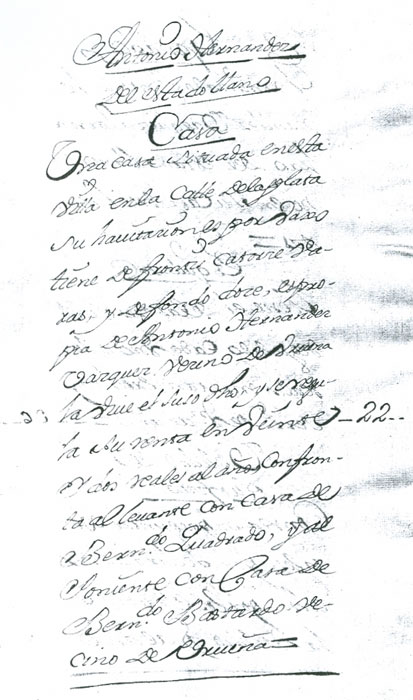 Antonio Hernandez
del estado llano
Casa
Una casa situada en esta
Villa en la Calle de la plata
su havitazion es por vaxo
tiene de frontis catorze va-
ras, y de fondo doze, es pro-
pia de Antonio Hernandez
Vazquez Vezino de
la Vive el suso dho, y se regu-
la su renta en Veinte 22
y dos reales al año, Confron-
ta al levante con Casa de
Bern.do Quadrado, y al
Poniente con Casa de
Bern.do Bastardo Ve-
cino de